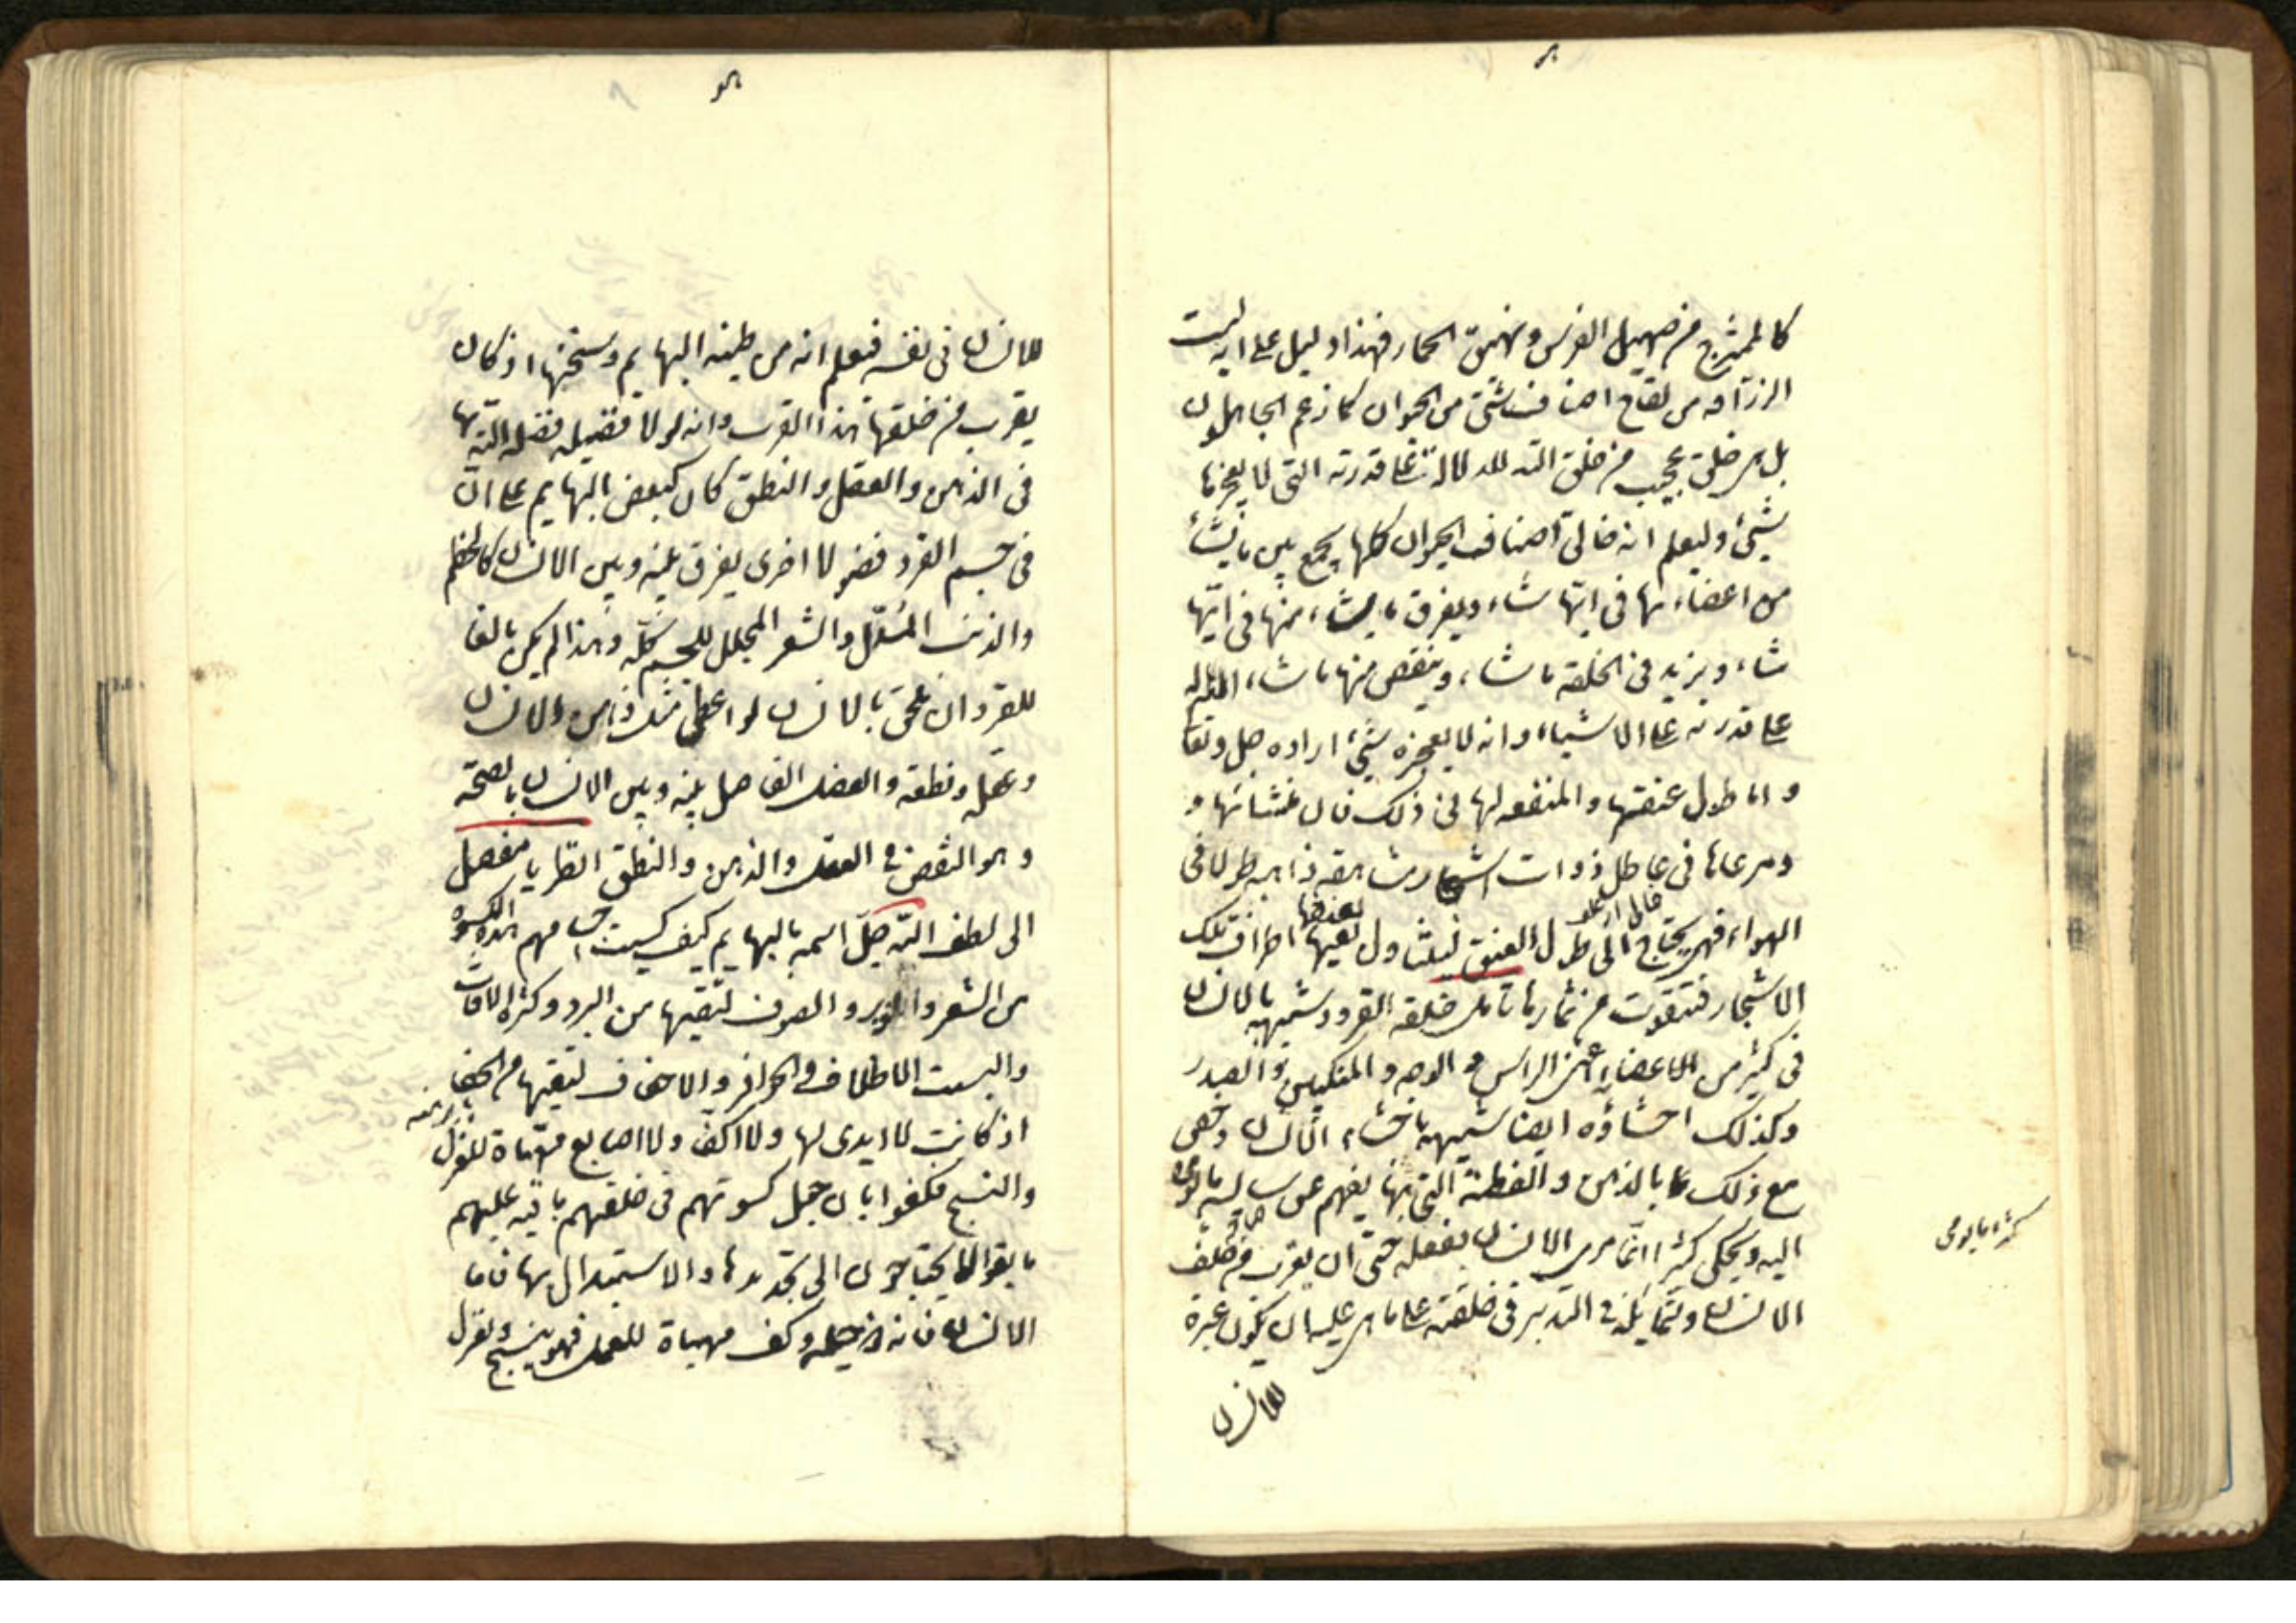 كالممتزج من صهيل الفرس ونهيق الحمار فهذا دليل على انه ليست
الزرافه من لقاح اصناف شتى من الحيوان كما زعم الجاهلون
بل هى خلق عجيب من خلق الله للدلالة على قدرته التى لا يعجزها
شيئ وليعلم انه خالق اصناف الحيوان كلها يجمع بين ما يشاء
من اعضاءها فى ايها شاء ويفرق ما يشاء منها فى ايها
شاء ويزيد فى الخلقه ما شاء وينقص منها ما شاء
على قدرته على الاشياء وانه لا يعجزه شيئ اراده جل وتعا
و اما طول عنقها والمنفعه لها فى ذلك فان منشائها و
ومرعاها فى غياطل ذوات اشجار شاهقه ذاهبه طولا فى
الهواء فهى يحتاج الى طول العنق ليتناول بفيها اطراف تلك
الاشجار فتتقوت من ثمارها تامل خلقه القرد وشبهه بالانسان
فى كثير من الاعضاء اعنى الراس و الوجه و المنكبين و الصدر
وكذلك احشاؤه ايضا شبيهه باحشاء الانسان وخص
مع ذلك بالذهن و الفطنة التى بها يفهم عن سايسه ما
اليه ويحكى كثيرا مما يرى الانسان يفعله حتى ان يقرب من خلق
الانسان وشمايله فى التدبير فى خلقته على ما هى عليه ان يكون عبرة
للانسان
للانسان فى نفسه فيعلم انه من طينه البهايم وسنخها اذ كان
يقرب من خلقها هذا القرب وانه لو لا فضيله فضله الله بها
فى الذهن والعقل و النطق كان كبعض البهايم على ان
فى جسم القرد فضولا اخرى يفرق بينه وبين الانسان كالخطم
والذنب المسدل والشعر المجلل للجسم كله وهذا لم يكن مانعا
للقرد ان يلحق بالانسان لو اعطى مثل ذهن الانسان
وعقله ونطقه والفصل الفاصل بينه وبين الانسان بالصحة
وهو النقص فى العقل والذهن والنطق انظر يا مفضل
الى لطف الله جل اسمه بالبهايم كيف كسيت اجسامهم هذه الكسوه
من الشعر والوبر و الصوف لتقيها من البرد وكثرة الافات
والبست الاظلاف و الحوافر و الاخفاف لتقيها من الحفا
اذ كانت لا ايدى لها ولا اكف ولا اصابع مهياة للغزل
والنسج فكفوا بان جعل كسوتهم فى خلقهم باقيه عليهم
ما بقوا لا يحتاجون الى تجديدها و الاستبدال بها فاما
الانسان فانه ذو حيله وكف مهياة للعمل فهو ينسج ويغزل